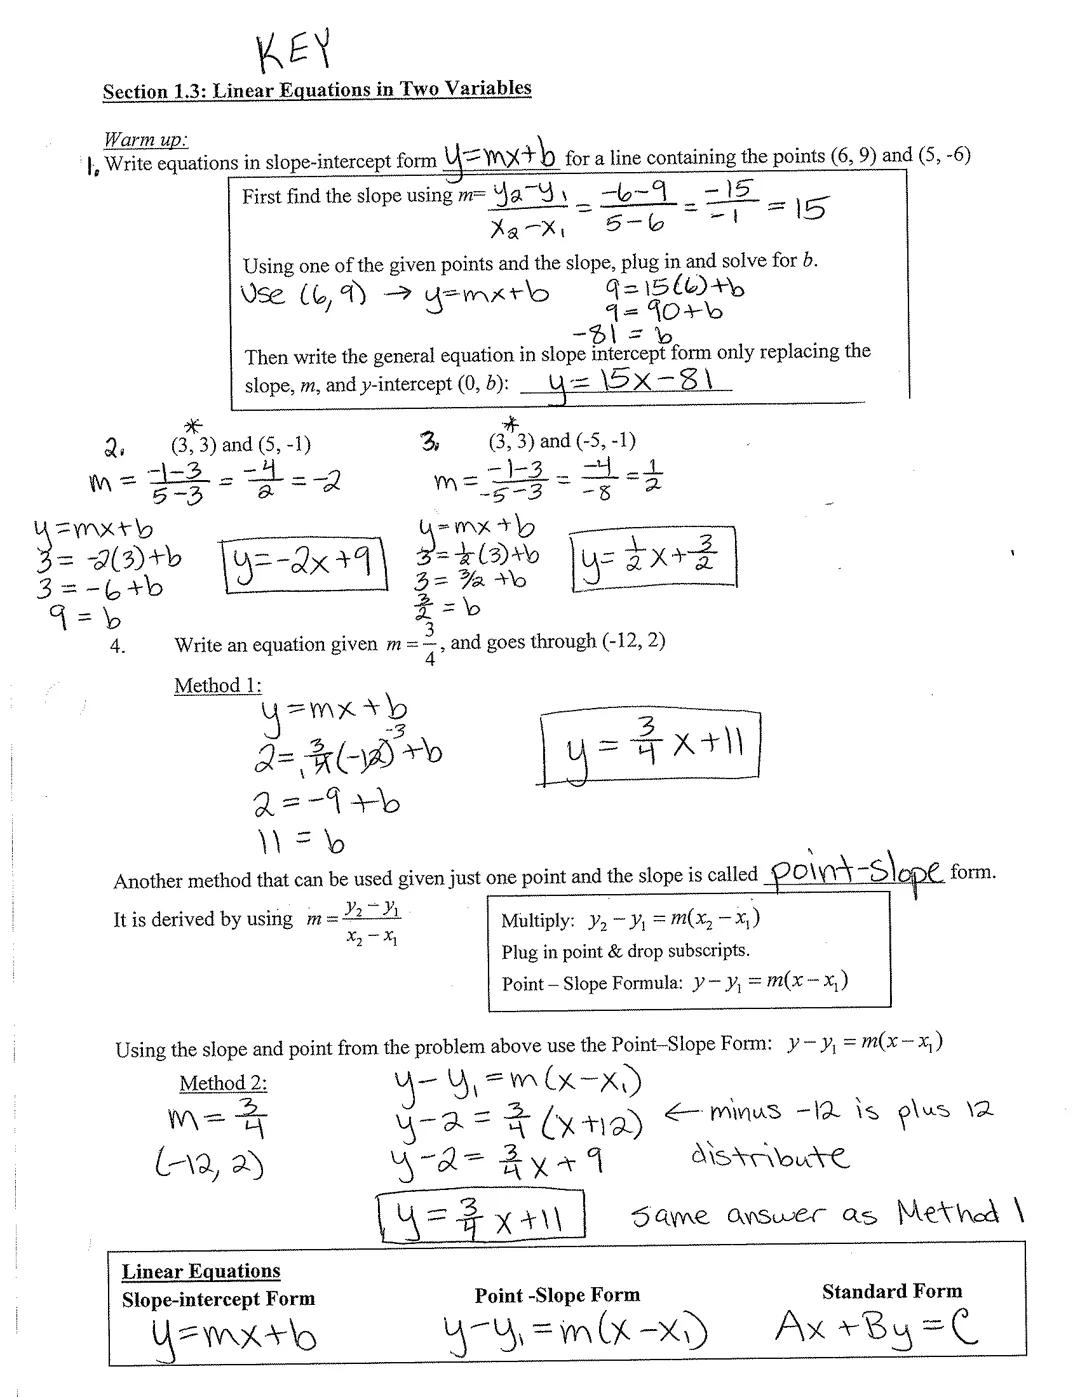 KEY
Section 1.3: Linear Equations in Two Variables
Warm up:
1. Write equations in slope-intercept form y=mx+b for a line containing the points (6, 9) and (5, -6)
First find the slope using m= (y₂-y₁)/(x₂-x₁) = (-6-9)/(5-6) = -15/-1 = 15
Using one of the given points and the slope, plug in and solve for b.
Use (6,9) → y=mx+b 9=15(6)+b
9=90+b
-81 = b
Then write the general equation in slope intercept form only replacing the
slope, m, and y-intercept (0, b): y=15x-81
2. (3, 3)* and (5, -1)
m = (-1-3)/(5-3) = -4/2 = -2
y=mx+b
3= -2(3)+b
3 = -6+b
9 = b
y=-2x+9
3. (3, 3)* and (-5, -1)
m = (-1-3)/(-5-3) = -4/-8 = 1/2
y=mx+b
3=1/2(3)+b
3= 3/2 +b
3/2 = b
y= 1/2 x + 3/2
4. Write an equation given m = 3/4, and goes through (-12, 2)
Method 1:
y=mx+b
2= 3/4(-12)+b -3 1
2=-9+b
11 = b
y = 3/4 x+11
Another method that can be used given just one point and the slope is called point-slope form.
It is derived by using m = (y₂ - y₁)/(x₂ - x₁)
Multiply: y₂ - y₁ = m(x₂ - x₁)
Plug in point & drop subscripts.
Point – Slope Formula: y - y₁ = m(x - x₁)
Using the slope and point from the problem above use the Point–Slope Form: y - y₁ = m(x - x₁)
Method 2:
m = 3/4
(-12, 2)
y-y₁=m(x-x₁)
y-2 = 3/4 (x+12) ← minus -12 is plus 12
y-2= 3/4 x+9 distribute
y = 3/4 x+11 same answer as Method 1
Linear Equations
Slope-intercept Form Point -Slope Form Standard Form
y=mx+b y-y₁=m(x-x₁) Ax+By=C